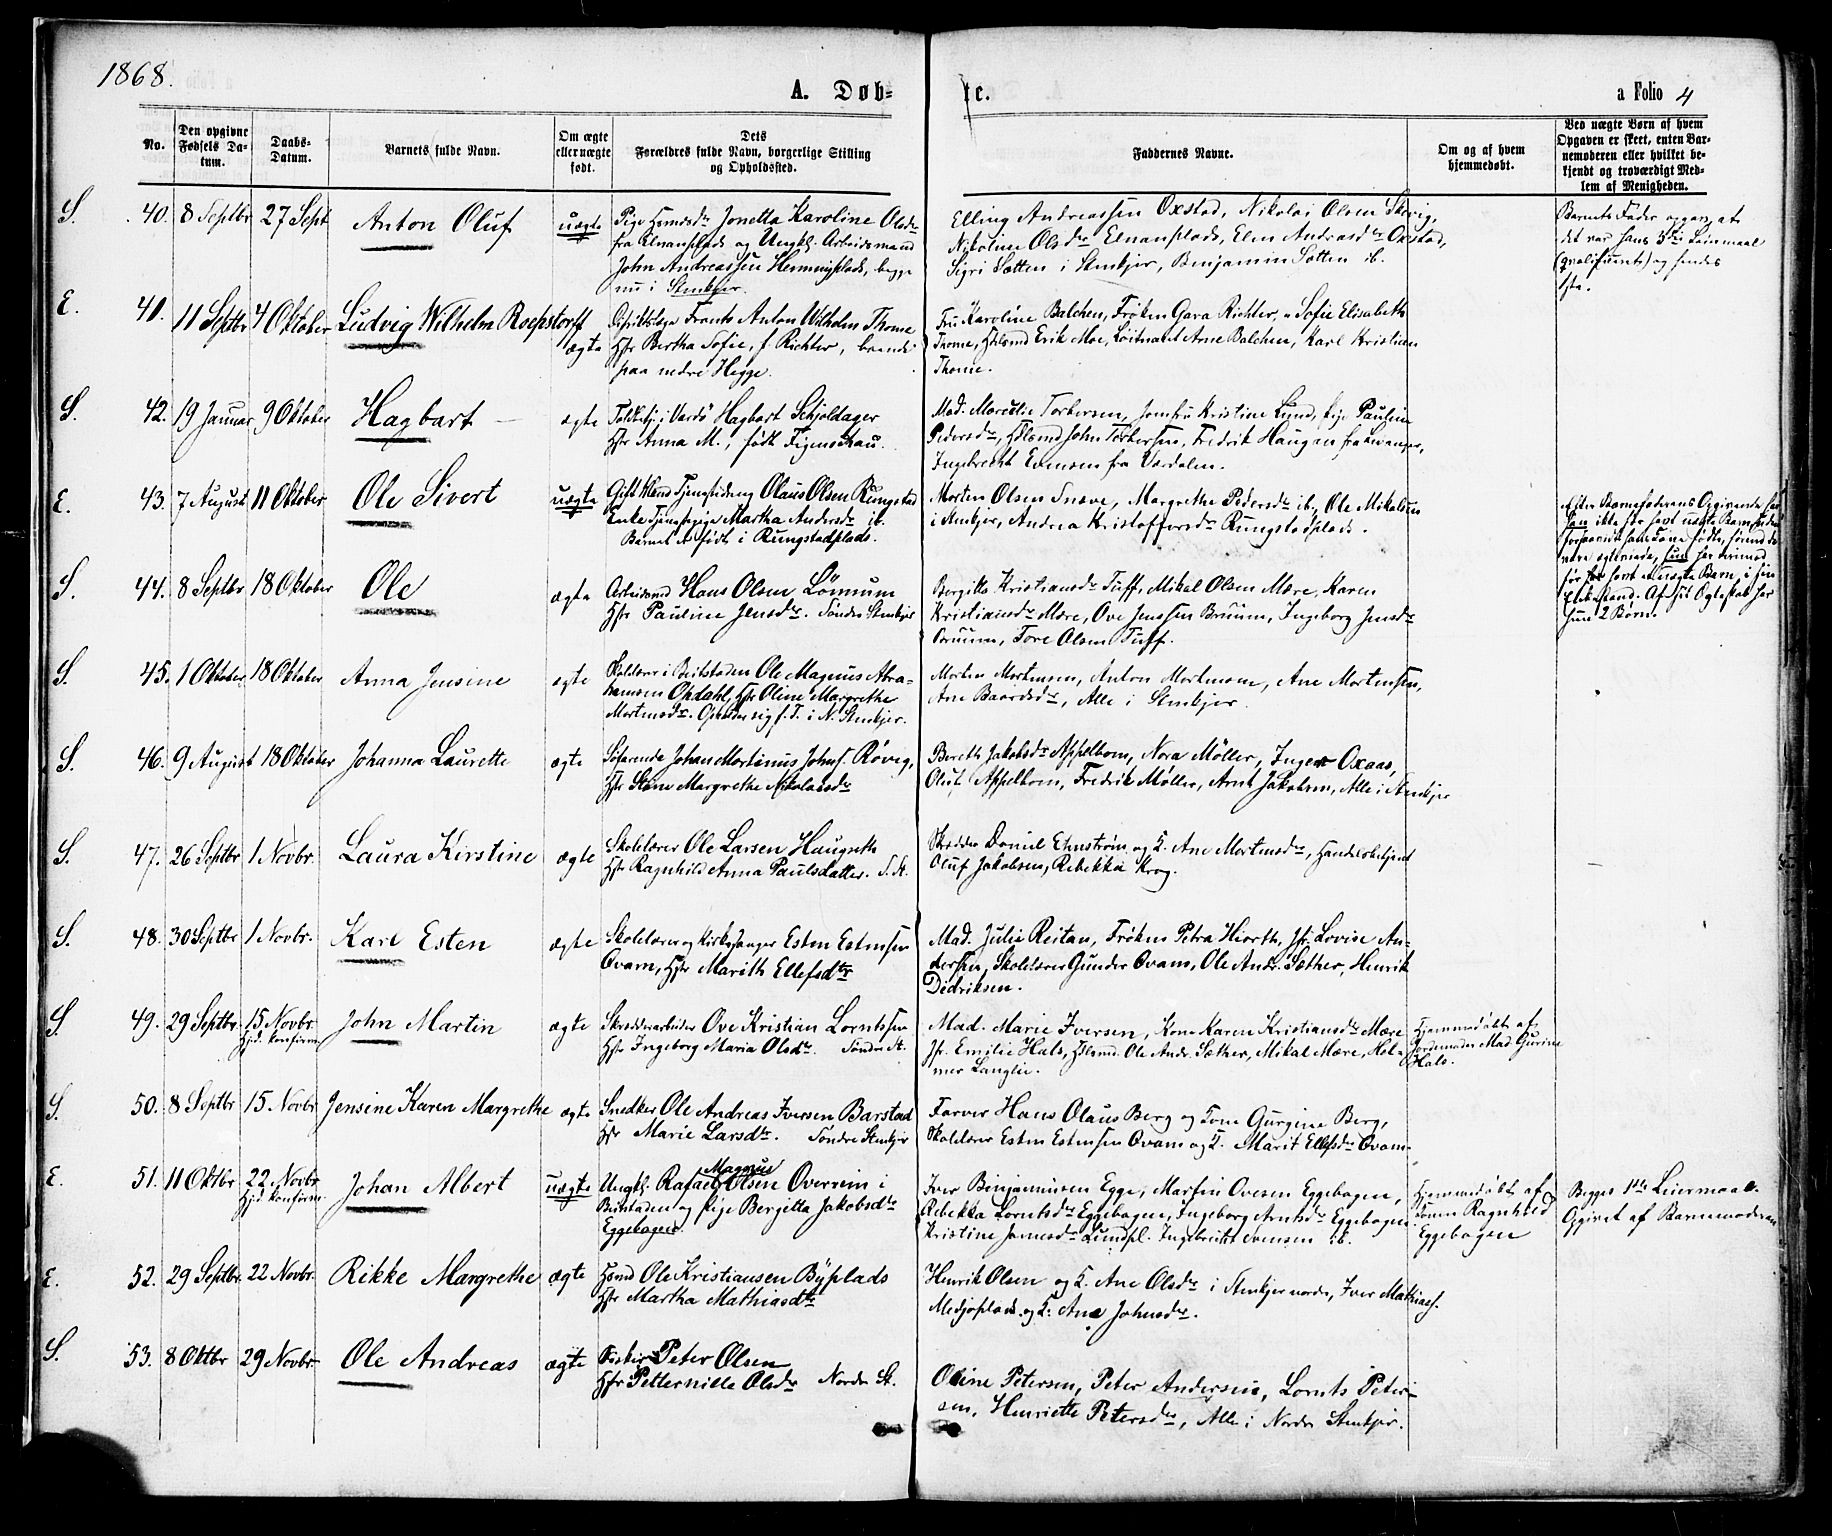 1868.
A. Døb-
te.
a Folio 4
No.
Den opgivne Fødsels Da-tum.
Daabs-Datum.
Barnets fulde Navn.
Om ægte eller uægte født.
Dets Forældres fulde Navn, borgerlige Stilling og Opholdssted.
Faddernes Navne.
Om og af hvem hjemmedøbt.
Ved uægte Børn af hvem Opgaven er skeet, enten Bar-nemoderen eller hvilket be-kjendt og troværdigt Med-lem af Menigheden.
S. 40. 8 Septbr 27 Sept Anton Oluf uægte
Pige Jonetta Karoline Olsdr
fra Elnanplads og Ungkl. Arbeidsmand
John Andreassen Hemningplads, begge
nu i Stenkjer.
Elling Andreassen Oxstad, Nikolai Olsen
Nikoline Olsdr Elnanplads, Elen Andreasdr Oxstad,
Sigri Sætten i Stenkjer, Benjamin Sætten ib.
Barnets Fader opgav, at
det var hans 3die Leiermaal
og hendes
1ste.
E. 41. 11 Septbr 4 Oktober Ludvig Wilhelm Roepstorff ægte
Frants Anton Wilhelm Thome
Hfr Bertha Sofie, f. Richter, boende
paa nedre Hegge.
Fru Karoline Balchen, Frøken Gara Richter, Sofie Elisabeth
Thome, Erik Moe, Løitnant Arne Balchen, Karl Kristian
Thome.
S. 42. 19 Januar 9 Oktober Hagbart ægte
i Vardö Hagbart Schjoldager
Hfr Anna M., født Figenschau.
Mad. Torbersen, Jomfru Kristine Lund, Pige Pauline
Pedersdr, John Torbersen, Fredrik Haugan fra Levanger,
Ingebrecht Evensen fra Værdalen.
E. 43. 7 August 11 Oktober Ole Sivert uægte
Gift Mand Olaus Olsen Rungstad
Enke Martha Andersdr ib.
Barnet er født i Rungstadplads.
Morten Olsen Snæve, Margrethe Pedersdr ib., Ole Mikalsen
i Stenkjer, Andrea Kristoffersdr Rungstadplads.
Efter Barnefaderens Opgivende har
han ikke før havt uægte Barn,
hun har
før havt uægte Barn, i sin
Enkestand. Af sit Ægteskab har
hun 2 Børn.
S. 44. 8 Septbr 18 Oktober Ole ægte
Arbeidsmd Hans Olsen Lømum
Hfr Pauline Jensdr. Söndre Stenkjer
Bergitte Kristiansdr Tuff, Mikal Olsen Mære, Karen
Kristiansdr Mære, Ove Jenssen Bruum, Ingeborg Jensdr
Bruum, Tore Olsen Tuff.
S. 45. 1 Oktober 18 Oktober Anna Jensine ægte
Skolelærer i Beitstaden Ole Magnus Abra-
hamsen Opdahl, Hfr Oline Margrethe
Mortensdr. Opholder sig f. T. i N. Stenkjer.
Morten Mortensen, Anton Mortensen, Ane Mortensen,
Ane Baardsdr, Alle i Stenkjer.
S. 46. 9 August 18 Oktober Johanna Laurette ægte
Søfarende Johan Martinus Johns. Røvig,
Hfr Margrethe Nikolaisdr
Bereth Jakobsdr Appelbom, Nora Møller, Inger Oxaas,
Oluf Appelbom, Fredrik Møller, Arnt Jakobsen, Alle i Stenkjer
S. 47. 26 Septbr 1 Novbr. Laura Kirstine ægte
Skolelærer Ole Larsen Haugseth
Hfr Ragnhild Anna Paulsdatter. S. St.
Skrædder Daniel Ehnstrøm og K. Ane Mortensdr, Handelsbetjent
Oluf Jakobsen, Rebekka Krog.
S. 48. 30 Septbr 1 Novbr. Karl Esten ægte
Skolelærer og Kirkesanger Esten Estensen
Ovam, Hfr Marith Ellefsdtr
Mad. Julie Reitan, Frøken Petra Hiorth, Jfr. Lovise An-
dersen, Skolelærer Gunder Ovam, Ole Andr. Sæther, Henrik
Didriksen.
S. 49. 29 Septbr. 15 Novbr. Hjd. konfirm John Martin ægte
Skrædderarbeider Ove Kristian Lorntsen
Hfr Ingeborg Maria Olsdr. Søndre St.
Mad. Marie Iversen, Kone Karen Kristiansdr Mære
Jfr. Emilie Hals, Ole Andr. Sæther, Mikal Mære, Hel-
mer Langlie.
Hjemmedøbt af
Jordemoder Mad. Gurine
Hals.
S. 50. 8 Septbr 15 Novbr Jensine Karen Margrethe ægte
Snedker Ole Andreas Iversen Barstad
Hfr Marie Larsdtr. Söndre Stenkjer
Farver Hans Olaus Berg og Kone Gurgine Berg,
Skolelærer Esten Estensen Ovam og K. Marit Ellefsdr Ovam.
E. 51. 11 Oktbr 22. Novbr. Hjd konfirm Johan Albert uægte
Ungkl. Rafael Magnus Olsen Overrein i
Beitstaden og Pige Bergitta Jakobsdtr
Eggebogen.
Iver Benjaminsen Egge, Martin Ovesen Eggebogen,
Rebekka Lorntsdr Eggebogen, Ingeborg Arntsdr Eggebogen
Kristine Jonasdr Lundpl. Ingebricht Svensen ib.
Hjemmedøbt af
Ragnhild
Eggebogen
Begges 1ste Leiermaal.
Opgivet af Barnemoderen
E. 52. 29 Septbr. 22 Novbr. Rikke Margrethe ægte
Hsmd Ole Kristiansen Byplads
Hfr Martha Mathiasdtr
Henrik Olsen og K. Ane Olsdr i Stenkjer nordre, Iver Mathiass.
Medjaplads og K. Ane Johnsdr.
S. 53. 8 Oktbr 29 Novbr. Ole Andreas ægte
Fisker Peter Olsen
Hfr Petternille Olsdr Nordre St.
Oline Petersen, Peter Andersen, Lornts Peter-
sen, Henriette Petersdr, Alle i Nordre Stenkjer.